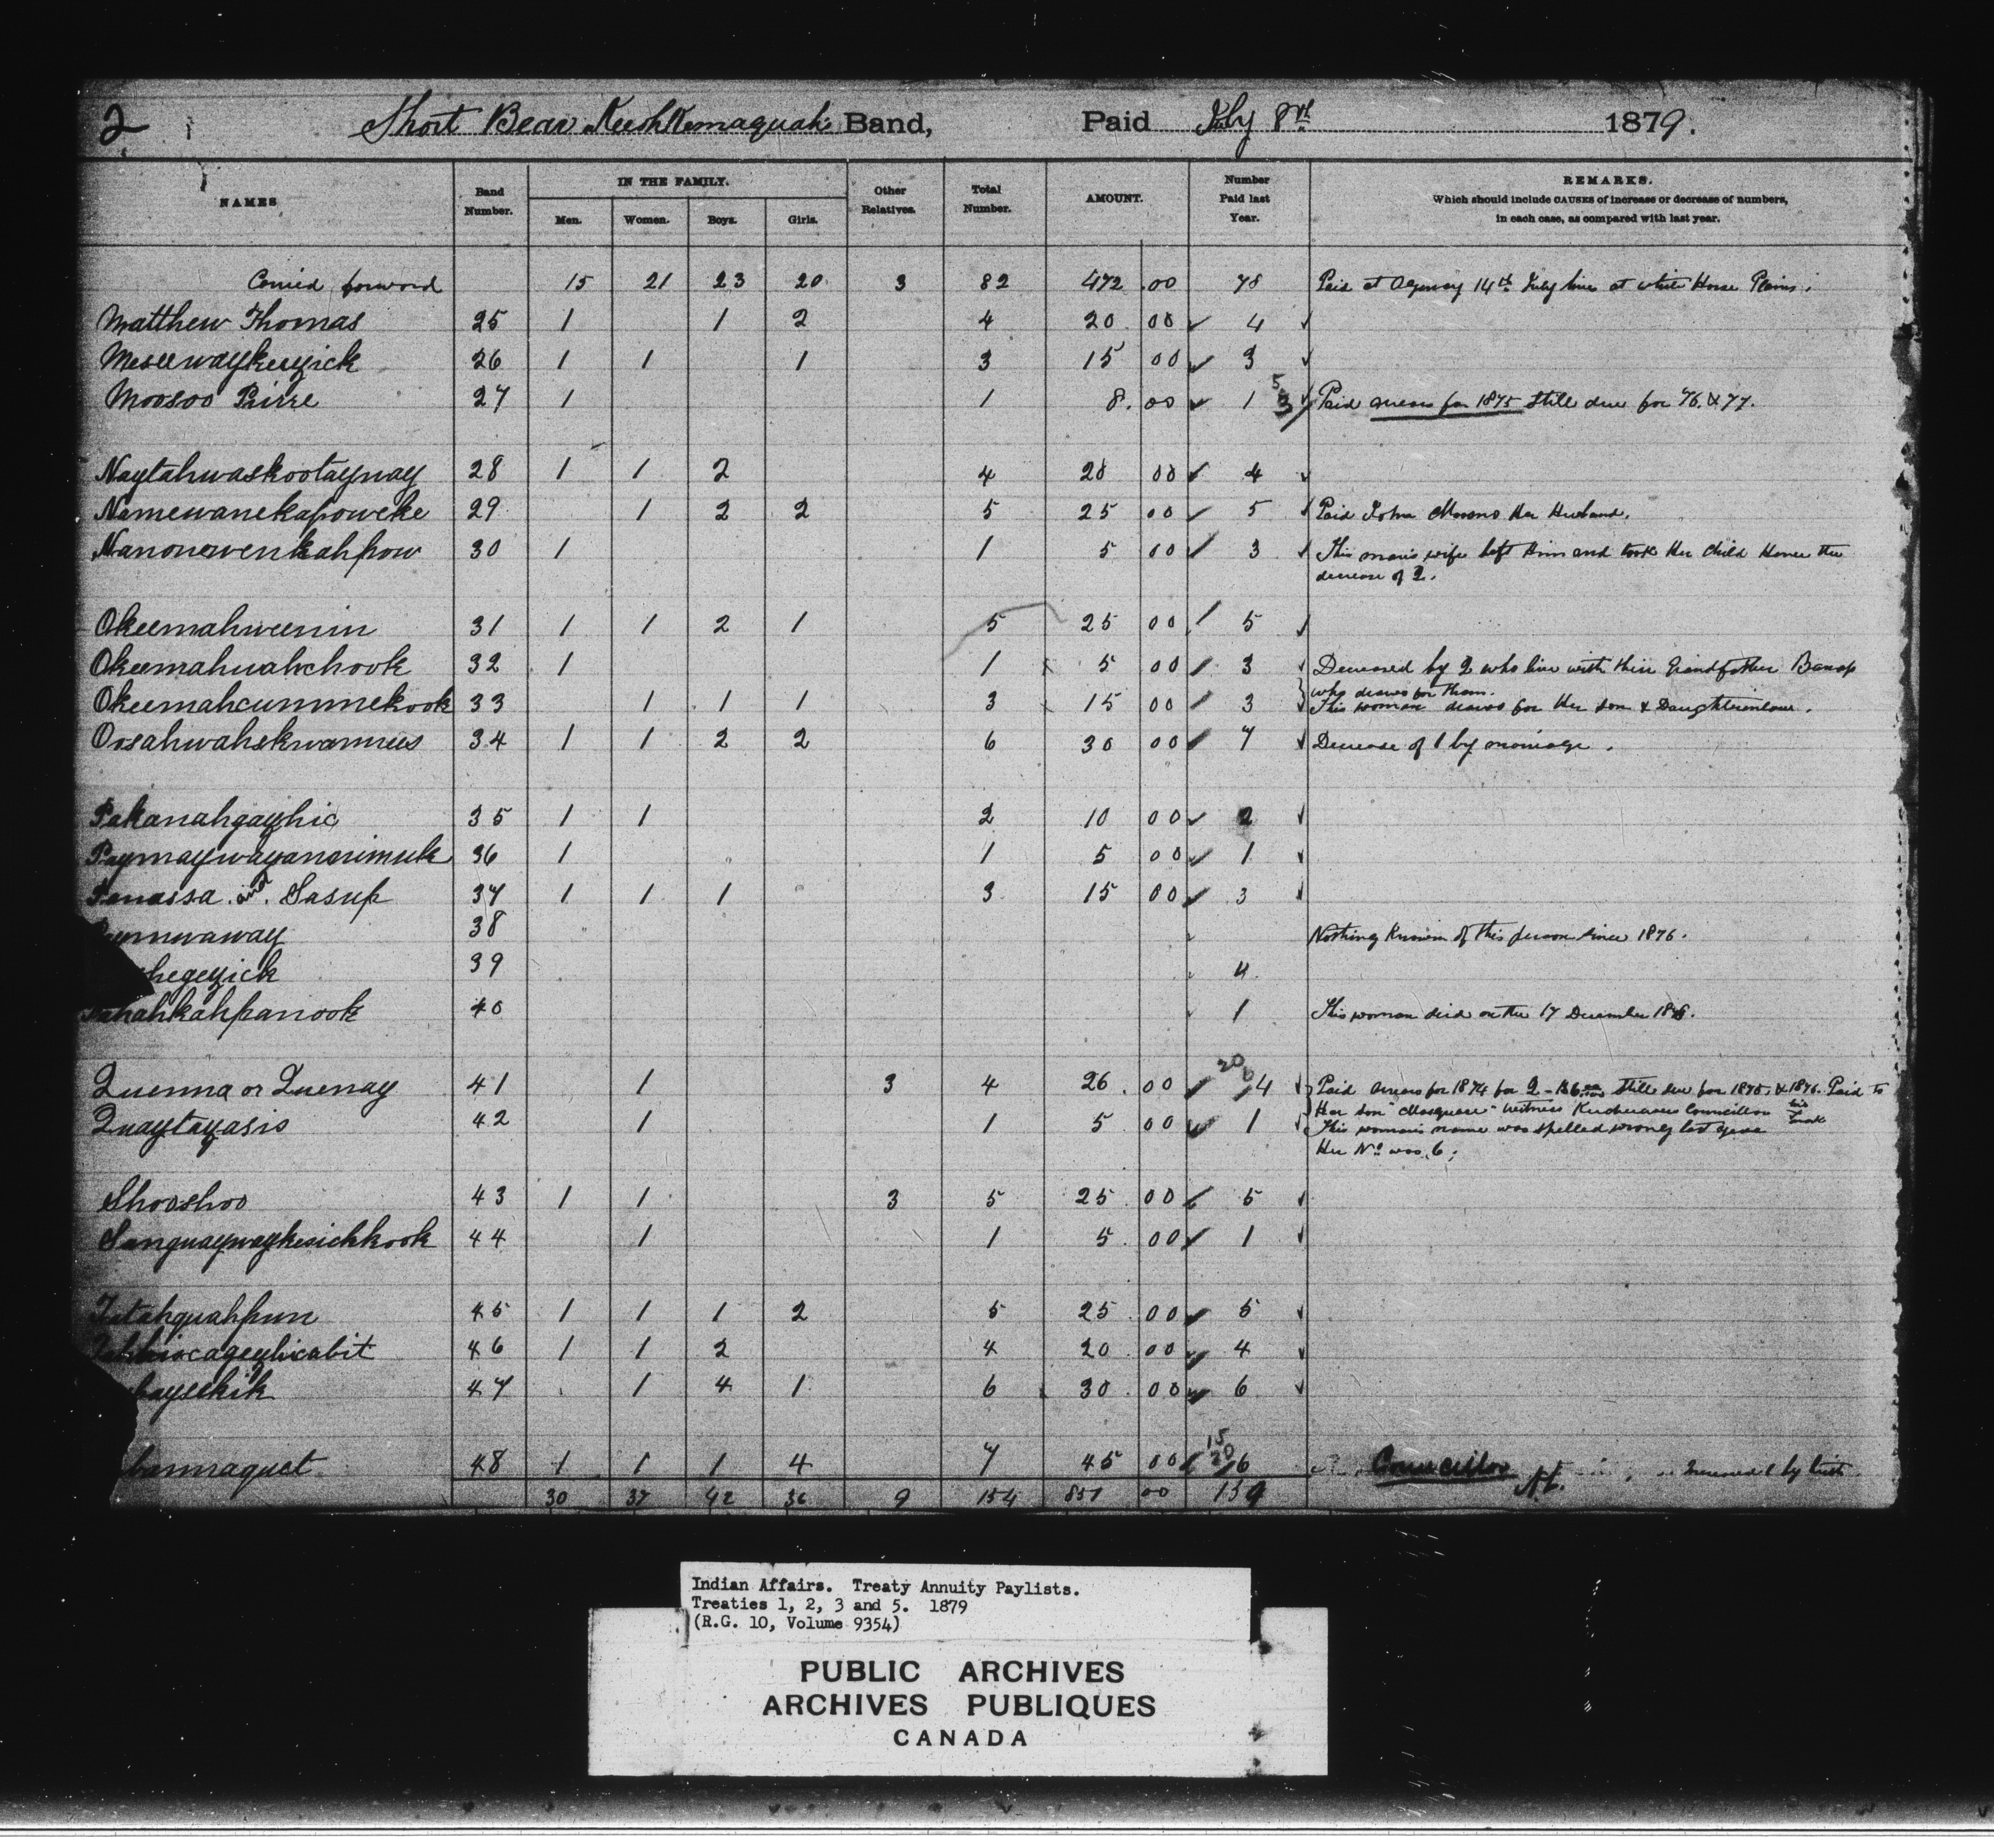 2 Short Bear Keeshkemaquah Band, Paid July 8th 1879.
NAMES Band Number. IN THE FAMILY. Men. Women. Boys. Girls. Other Relatives. Total Number. AMOUNT. Number Paid last Year. REMARKS. Which should include CAUSES of increase or decrease of numbers, in each case, as compared with last year.
Carried forward 15 21 23 20 3 82 472 .00 78 Paid at Agency 14th July lives at White Horse Plains.
Matthew Thomas 25 1 1 2 4 20 00 4
Meseewaykeezick 26 1 1 1 3 15 00 3
Moosoo Pierre 27 1 1 8. 00 1 5 3 Paid arrears for 1875 still due for 76. & 77.
Naytahwaskootaynay 28 1 1 2 4 20 00 4
Namewanekapoweke 29 1 2 2 5 25 00 5 Paid John Her Husband.
Nanonewenkahpow 30 1 1 5 00 3 This man's wife left him and took Her child Hence the
decrease of 2.
Okeemahweenin 31 1 1 2 1 5 25 00 5
Okeemahwahchook 32 1 1 5 00 3 Decreased by 2 who live with their Grandfather
who draws for them.
Okeemahcummekook 33 1 1 1 3 15 00 3 This woman draws for Her son & Daughterinlaw.
Oosahwahskwamees 34 1 1 2 2 6 30 00 7 Decrease of 1 by marriage.
Pakanahgayhic 35 1 1 2 10 00 2
Paymaywayanorimuk 36 1 1 5 00 1
Penassa and Sasup 37 1 1 1 3 15 00 3
38 Nothing Known of this person since 1876.
hegezick 39 4
ahkahpanook 40 1 This woman died on the 17 December 1878.
Quenna or Quenay 41 1 3 4 26 .00 20 6 4 Paid arrears for 1874 for 2 - $6.00 still due for 1875. & 1876. Paid to
Her son witness Councillor his mark
Quaytayasis 42 1 1 5 00 1 This woman's name was spelled wrong last year
Her No was 6.
Shooshoo 43 1 1 3 5 25 00 5
Sanguaywaykesickkook 44 1 1 5 00 1
Tatahquahpun 45 1 1 1 2 5 25 00 5
cageyhicabit 46 1 1 2 4 20 00 4
baysekik 47 1 4 1 6 30 00 6
bannaquet 48 1 1 1 4 7 45 00 15 20 6 Councillor Increased 1 by birth
30 37 42 36 9 154 857 00 159
Indian Affairs. Treaty Annuity Paylists.
Treaties 1, 2, 3 and 5. 1879
(R.G. 10, Volume 9354)
PUBLIC ARCHIVES
ARCHIVES PUBLIQUES
CANADA